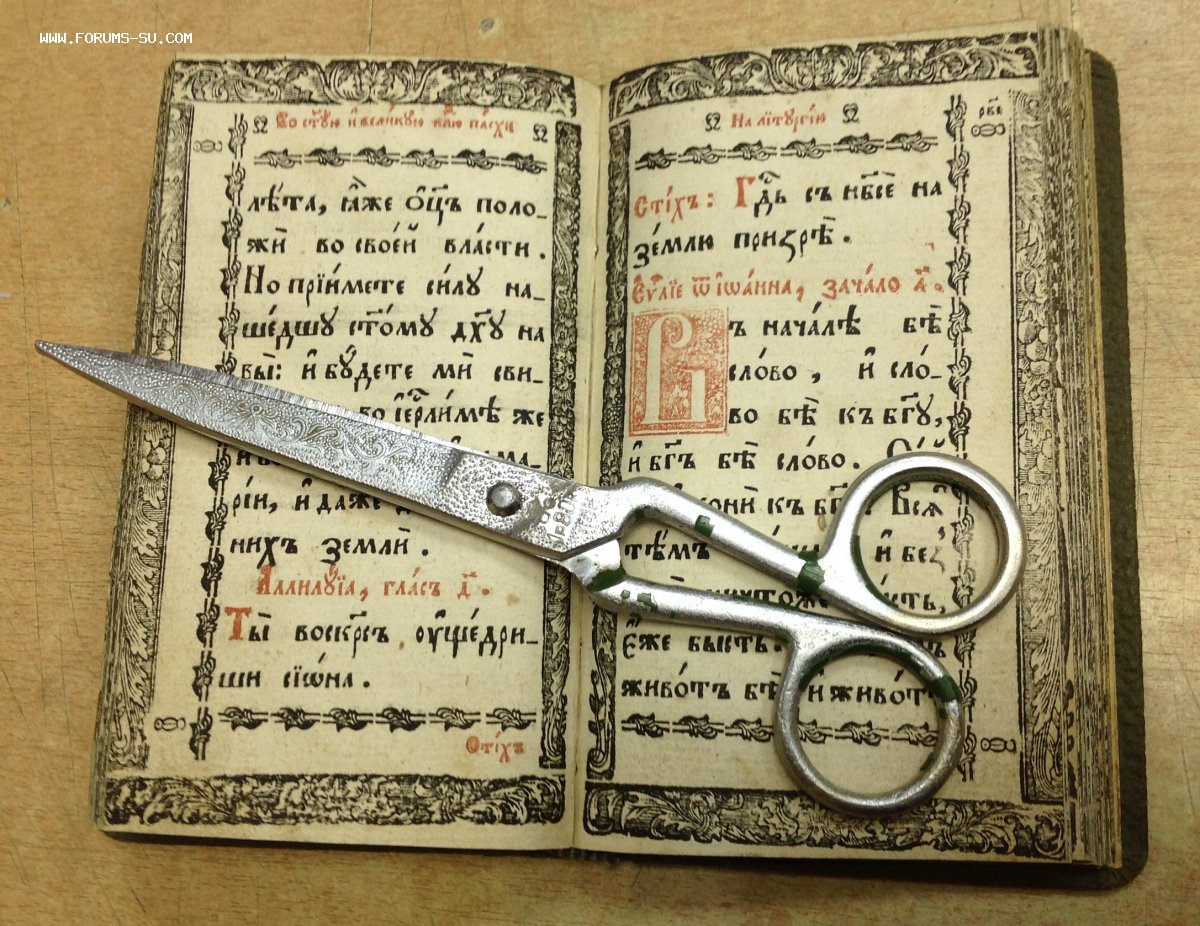 WWW.FORUMS-SU.COM
Во ст҃ꙋю и҆ вели́кꙋю нл҃ю па́схи
лѣ́та, ꙗ҆̀же ѻ҆ц҃ъ поло_
жѝ во свое́й вла́сти.
Но прїи́мете си́лꙋ на_
ше́дшꙋ ст҃о́мꙋ дх҃ꙋ на
вы̀: и҆ бꙋ́дете мѝ сви_
во і҆ер҇ли́мѣ же
рі́и, и҆ да́же
нихъ землѝ.
А҆ллилꙋ́їа, гла́съ д҃.
Ты̀ воскр҃съ ᲂу҆ще́дри_
ши сїѡ́на.
Сті́хъ
На літꙋргі́и
рв҃е
Сті́хъ: Гд҇ь съ нб҃сѐ на
зе́млю призрѣ̀.
Є҆ѵⷢ҇лїе ѿ і҆ѡа́нна, зача́ло а҃.
Въ нача́лѣ бѣ̀
сло́во, и҆ сло́_
во бѣ̀ къ бг҃ꙋ,
и҆ бг҃ъ бѣ̀ сло́во.
къ Всѧ̑
тѣ́мъ и҆ без̾
є҆́же бы́сть.
живо́тъ бѣ̀ и҆ живо́тъ